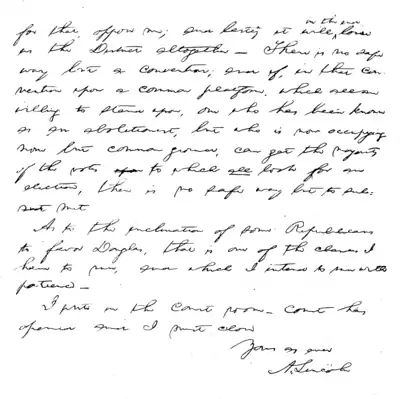 in the end
for that, oppose me; and lastly it will, lose
us the District altogether — There is no safe
way but a convention; and if, in that con-
vention upon a common platform, which all are
willing to stand upon, one who has been known
as an abolitionist, but who is now occupying
none but common ground, can get the majority
of the votes to which all look for an
election, there is no safe way but to sub-
mit
As to the inclination of some Republicans
to favor Douglas, that is one of the chances I
have to run, and which I intend to run with
patience —
I write in the Court room — Court has
opened and I must close
Yours as ever
A. Lincoln